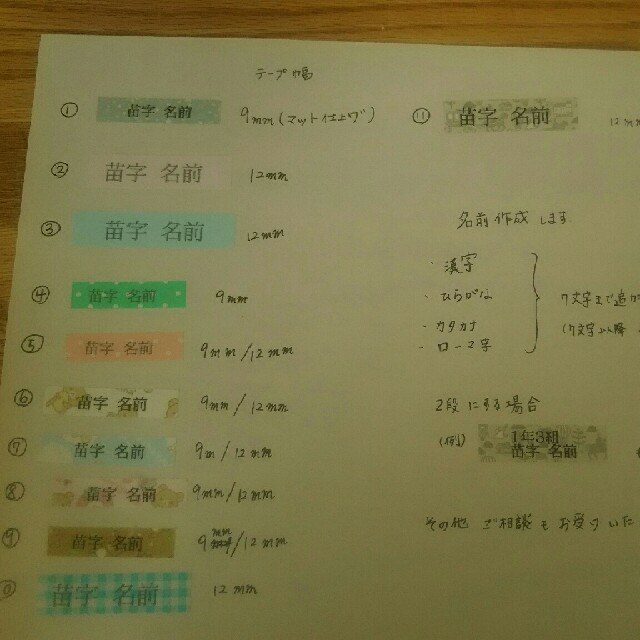 テープ幅
① 苗字 名前 9mm(マット仕上げ)
② 苗字 名前 12mm
③ 苗字 名前 12mm
④ 苗字 名前 9mm
⑤ 苗字 名前 9mm/12mm
⑥ 苗字 名前 9mm/12mm
⑦ 苗字 名前 9m/12mm
⑧ 苗字 名前 9mm/12mm
⑨ 苗字 名前 9mm/12mm
⑩ 苗字 名前 12mm
⑪ 苗字 名前 12mm
名前作成します
・漢字
・ひらがな
・カタカナ
・ローマ字
7文字まで追加
(7文字以降
2段にする場合
(例) 1年3組
苗字 名前
その他 ご相談もお受けいた